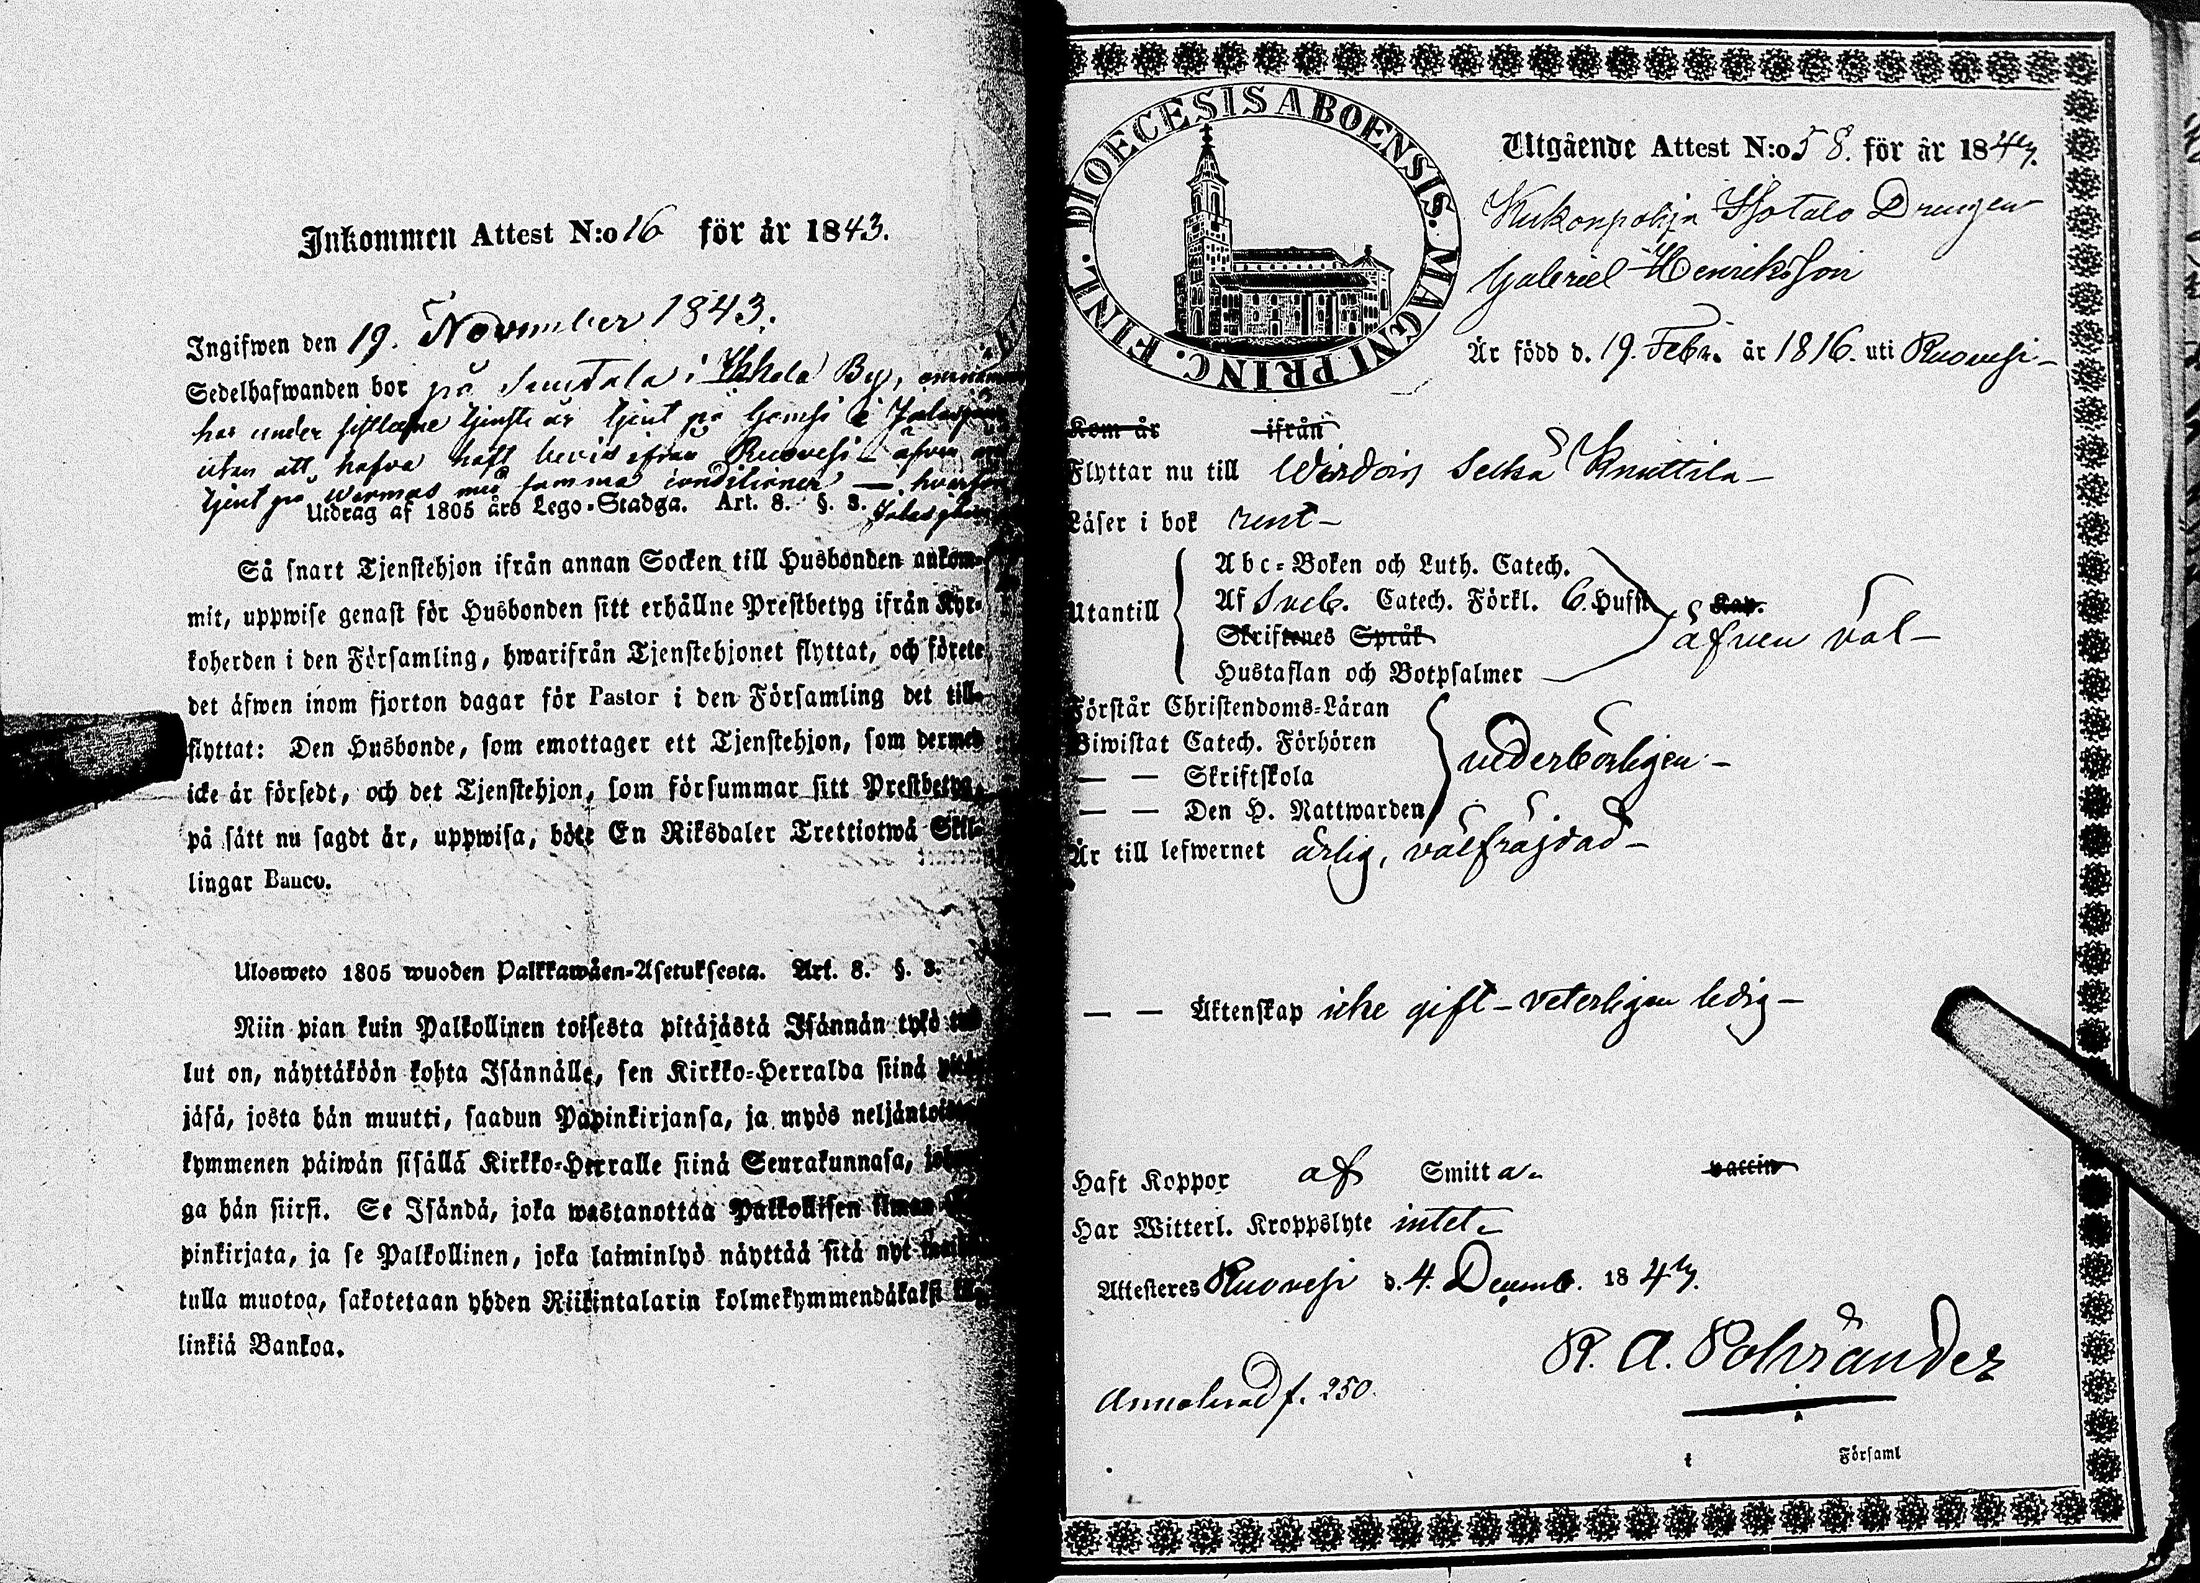 Inkommen Attest N:o 16 för år 1843.
Ingifwen den 19. November 1843.
Sedelhafwanden bor på i By,
har under tjenste år tjent på i
utan att hafva haft bevis ifrån Ruovesi – äfven
tjent på med samma conditioner — 
Utdrag af 1805 års Lego-Stadga. Art. 8. §. 3.
Så snart Tjenstehjon ifrån annan Socken till Husbonden ankom-
mit, uppwise genast för Husbonden sitt erhållne Prestbetyg ifrån Kyr-
koherden i den Församling, hwarifrån Tjenstehjonet flyttat, och förete
det äfwen inom fjorton dagar för Pastor i den Församling det till-
flyttat: Den Husbonde, som emottager ett Tjenstehjon, som dermed
icke är försedt, och det Tjenstehjon, som försummar sitt Prestbetyg,
på sätt nu sagdt är, uppwisa, böte En Riksdaler Trettiotwå Skil-
lingar Banco.
Ulosweto 1805 wuoden Palkkawäen-Asetuksesta. Art. 8. §. 3.
Niin pian kuin Palkollinen toisesta pitäjästä Isännän tykö tul-
lut on, näyttäköön kohta Isännälle, sen Kirkko-Herralda siinä pitä-
jäsä, josta hän muutti, saadun Papinkirjansa, ja myös neljäntoista
kymmenen päiwän sisällä Kirkko-Herralle siinä Seurakunnasa,
ga hän siirsi. Se Isändä, joka wastanottaa Palkollisen ilman
pinkirjata, ja se Palkollinen, joka laiminlyö näyttää sitä nyt
tulla muotoa, sakotetaan yhden Riikintalarin kolmekymmendäkaksi
linkiä Bankoa.
DIOECESIS ABOENSIS. MAGNI PRINC. FINL.
Utgående Attest N:o 58. för år 184
Kukonpohja Drengen
Gabriel Henriksson
Är född d. 19. Febr. år 1816. uti Ruovesi –
Kom år ifrån
Flyttar nu till Wirdois Knuttila –
Läser i bok rent –
Utantill
Abc-Boken och Luth. Catech.
Af Sveb. Catech. Förkl. 6. Hufst. Kap.
Skriftenes Språk
Hustaflan och Botpsalmer
äfven väl –
Förstår Christendoms-Läran
Biwistat Catech. Förhören
— — Skriftskola
— — Den H. Nattwarden
vederbörligen –
Är till lefwernet ärlig, välfräjdad –
— — Äktenskap icke gift – veterligen ledig –
Haft Koppor af Smitta. vaccin
Har Witterl. Kroppslyte intet.
Attesteres Ruovesi d. 4. Decemb. 184
R. A. Pohränder
Annoterad f. 250.
i Församl